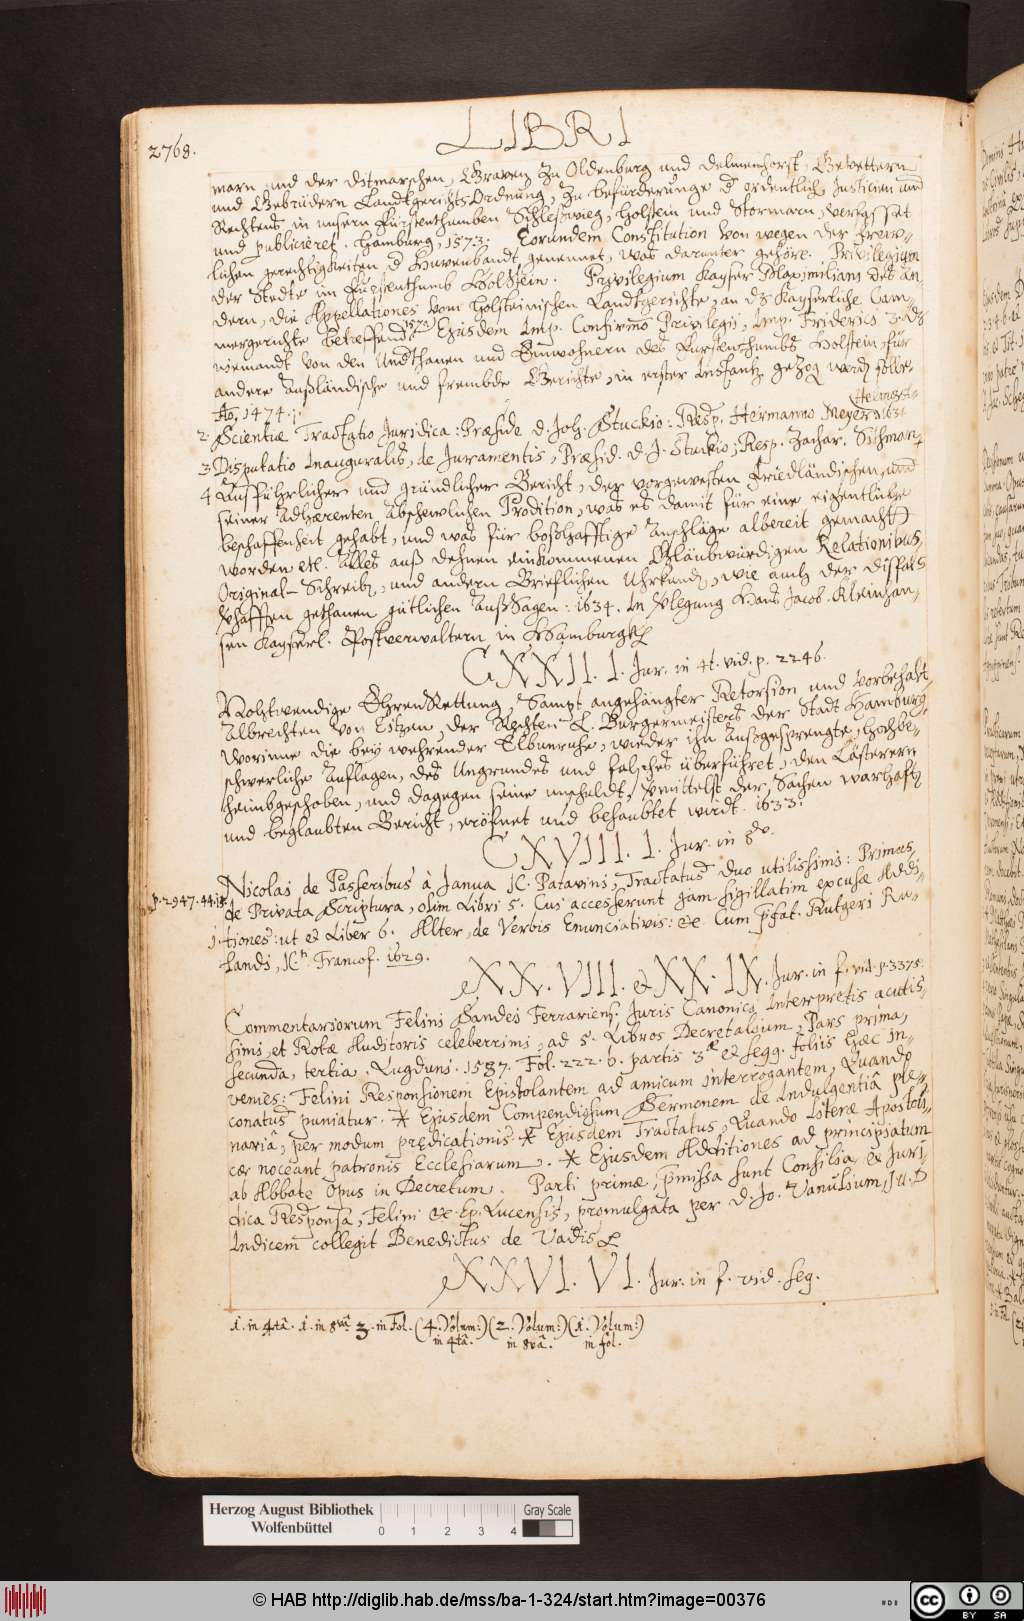 2768.
LIBRI
marn und der Ditmarschen, Graven Zu Oldenburg und Delmenhorst, Gevettern
und Gebrüdern Landtgerichts Ordnung, Zu befürderunge d ordentlich Justicien und
Rechtens in unsern Fürstenthumben Schleswieg, Holstein und Stormarn, verfasset
und publicieret. Hamburg, 1573. Eorundem Constitution von wegen der Frew-
lichen gerechtigkeiten, d Havenbandt genennet, was darunter gehöre. Privilegium
der Stedte im Fürstenthumb Holstein. Privilegium Kayser Maximiliani des An-
dern, die Appellationes vom Holsteinischen Landtgerichte, an dz Kayserliche Cam-
mergerichte betreffend. 1572 Ejusdem Imp. Confirmo Privilegii, Imp. Friderici 3. Dz
niemandt von den Underthanen und Einwohnern des Furstenthumbs Holstein, für
andere Außländische und frembde Gerichte, in erster Instantz gezog werd solle.
Ao, 1474.
2. Scientiæ Tractatio Juridica: Præside D. Joh. Stuckio: Resp. Hermanno Meyer. 1634
Helmæst.
3 Disputatio Inauguralis, de Juramentis, Præsid. D. J. Stuckio; Resp. Zachar. Sithman.
4 Ausführlicher und gründlicher Bericht, der vorgewesten Friedländischen, und
seiner Adhærenten abschewlichen Prodition, was es damit für eine eigentliche
beschaffenheit gehabt, und was für boßhafftige Anschläge albereit gemacht
worden etc. Alles auß dehnen einkommenen Gläubwürdigen Relationibus,
Original-Schreib, und andern Brieflichen Uhrkund, wie auch der dißfals
gethanen gütlichen Auß Sagen: 1634. In Vlegung Hans Jacob Kleinhan-
sen Kayserl. Postverwaltern in Hamburgk
CXXII. 1. Jur. in 4t. vid. p. 2246.
Nohtwendige Ehren Rettung, Sampt angehängter Retorsion und vorbehalt
Albrechten von Eitzen, der Rechten L. Burgermeisters der Stadt Hamburg,
Worinne die bey wehrender Elbunruhe, wieder ihn Außgesprengte, Hochbe-
schwerliche Auflagen, des Ungrundes und falsches überführet, den Lästerern
heimbgeschoben, und dagegen seine unschuldt, vermittelst der Sachen warhafft
und beglaubten Bericht, eröfnet und behaubtet wirdt. 1633.
CXVIII. 1. Jur. in 8vo.
p. 2947. 44.
Nicolai de Passeribus à Janua JC. Patavini, Tractatus duo utilissimi: Primus,
de Privata Scriptura, olim Libri 5. Cui accesserunt jam sigillatim excusæ Addi-
1. tiones: ut et Liber 6. Alter, de Verbis Enunciativis: &c. Cum præfat. Rutgeri Ru-
landi, JCti. Francof. 1629.
XX. VIII. & XX. IX. Jur. in f. vid. p. 3375.
Commentariorum Felini Sandei Ferrariens. Juris Canonici Interpretis acutis-
simi, et Rotæ Auditoris celeberrimi, ad 5. Libros Decretalium, Pars prima,
secunda, tertia. Lugduni. 1587. Fol. 222. b. partis 3æ & segg. foliis hæc in-
venies: Felini Responsionem Epistolantem ad amicum interrogantem, Quando
conatus puniatur. * Ejusdem Compendiosum Sermonem de Indulgentiâ ple-
nariâ, per modum prædicationis. * Ejusdem Tractatus, Quando Literæ Apostoli-
cæ noceant patronis Ecclesiarum. * Ejusdem Additiones ad principiatum
ab Abbate Opus in Decretum. Parti primæ, præmissa sunt Consilia & Juri-
dica Responsa, Felini &c. Ep. Lucensis, promulgata per D. Jo. Vanulium, J.U.D
Indicem collegit Benedictus de Vadis
XXVI. VI. Jur. in f. vid. seg.
1. in 4tâ. 1. in 8vâ 3. in Fol. (4. Volum:) (2. Volum:) (1. Volum:)
in 4tâ. in 8vâ. in fol.
Herzog August Bibliothek
Wolfenbüttel
0 1 2 3 4
Gray Scale
© HAB http://diglib.hab.de/mss/ba-1-324/start.htm?image=00376
cc BY SA